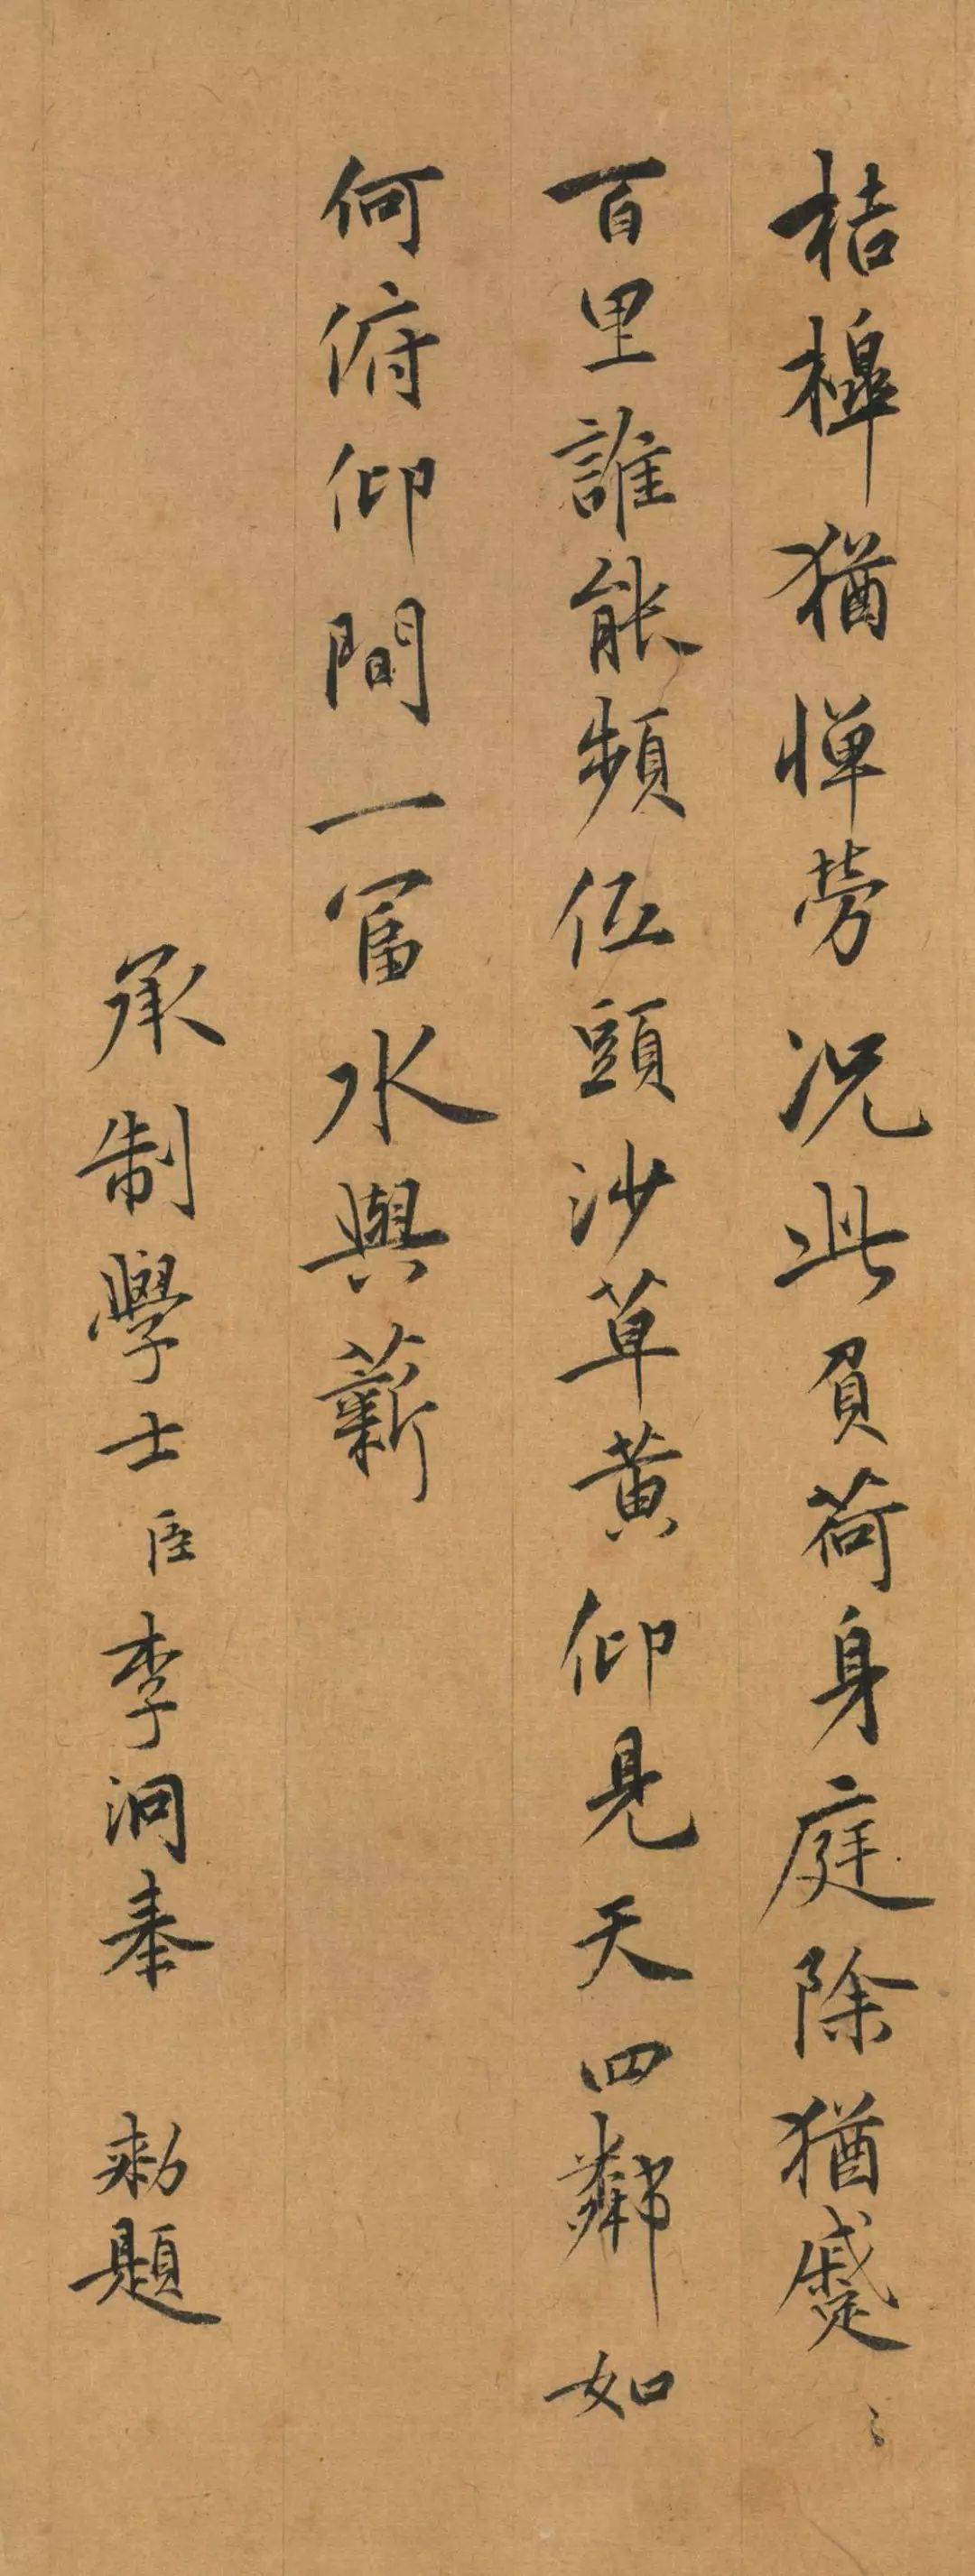 桔槔猶憚勞况此負荷身庭除猶蹙〻
百里誰能頻低頭沙草黄仰見天四鄰如
何俯仰間一富水與薪
承制學士臣李泂奉 勅題